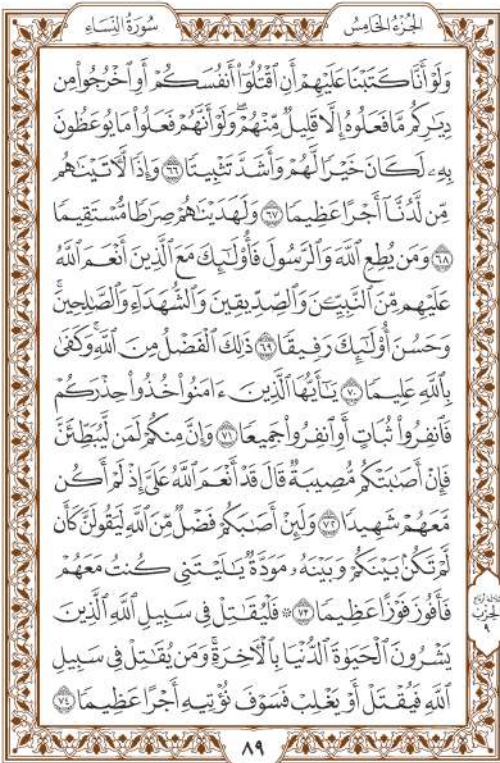 سُورَةُ النِّسَاءِ
الجُزْءُ الخَامِسُ
وَلَوْ أَنَّا كَتَبْنَا عَلَيْهِمْ أَنِ ٱقْتُلُوٓا۟ أَنفُسَكُمْ أَوِ ٱخْرُجُوا۟ مِن
دِيَـٰرِكُم مَّا فَعَلُوهُ إِلَّا قَلِيلٌ مِّنْهُمْ ۖ وَلَوْ أَنَّهُمْ فَعَلُوا۟ مَا يُوعَظُونَ
بِهِۦ لَكَانَ خَيْرًا لَّهُمْ وَأَشَدَّ تَثْبِيتًا ٦٦ وَإِذًا لَّـَٔاتَيْنَـٰهُم
مِّن لَّدُنَّآ أَجْرًا عَظِيمًا ٦٧ وَلَهَدَيْنَـٰهُمْ صِرَٰطًا مُّسْتَقِيمًا
٦٨ وَمَن يُطِعِ ٱللَّهَ وَٱلرَّسُولَ فَأُو۟لَـٰٓئِكَ مَعَ ٱلَّذِينَ أَنْعَمَ ٱللَّهُ
عَلَيْهِم مِّنَ ٱلنَّبِيِّـۧنَ وَٱلصِّدِّيقِينَ وَٱلشُّهَدَآءِ وَٱلصَّـٰلِحِينَ ۚ
وَحَسُنَ أُو۟لَـٰٓئِكَ رَفِيقًا ٦٩ ذَٰلِكَ ٱلْفَضْلُ مِنَ ٱللَّهِ ۚ وَكَفَىٰ
بِٱللَّهِ عَلِيمًا ٧٠ يَـٰٓأَيُّهَا ٱلَّذِينَ ءَامَنُوا۟ خُذُوا۟ حِذْرَكُمْ
فَٱنفِرُوا۟ ثُبَاتٍ أَوِ ٱنفِرُوا۟ جَمِيعًا ٧١ وَإِنَّ مِنكُمْ لَمَن لَّيُبَطِّئَنَّ
فَإِنْ أَصَـٰبَتْكُم مُّصِيبَةٌ قَالَ قَدْ أَنْعَمَ ٱللَّهُ عَلَىَّ إِذْ لَمْ أَكُن
مَّعَهُمْ شَهِيدًا ٧٢ وَلَئِنْ أَصَـٰبَكُمْ فَضْلٌ مِّنَ ٱللَّهِ لَيَقُولَنَّ كَأَن
لَّمْ تَكُنۢ بَيْنَكُمْ وَبَيْنَهُۥ مَوَدَّةٌ يَـٰلَيْتَنِى كُنتُ مَعَهُمْ
فَأَفُوزَ فَوْزًا عَظِيمًا ٧٣ ۞ فَلْيُقَـٰتِلْ فِى سَبِيلِ ٱللَّهِ ٱلَّذِينَ
يَشْرُونَ ٱلْحَيَوٰةَ ٱلدُّنْيَا بِٱلْـَٔاخِرَةِ ۚ وَمَن يُقَـٰتِلْ فِى سَبِيلِ
ٱللَّهِ فَيُقْتَلْ أَوْ يَغْلِبْ فَسَوْفَ نُؤْتِيهِ أَجْرًا عَظِيمًا ٧٤
الحِزْب
٩
٨٩